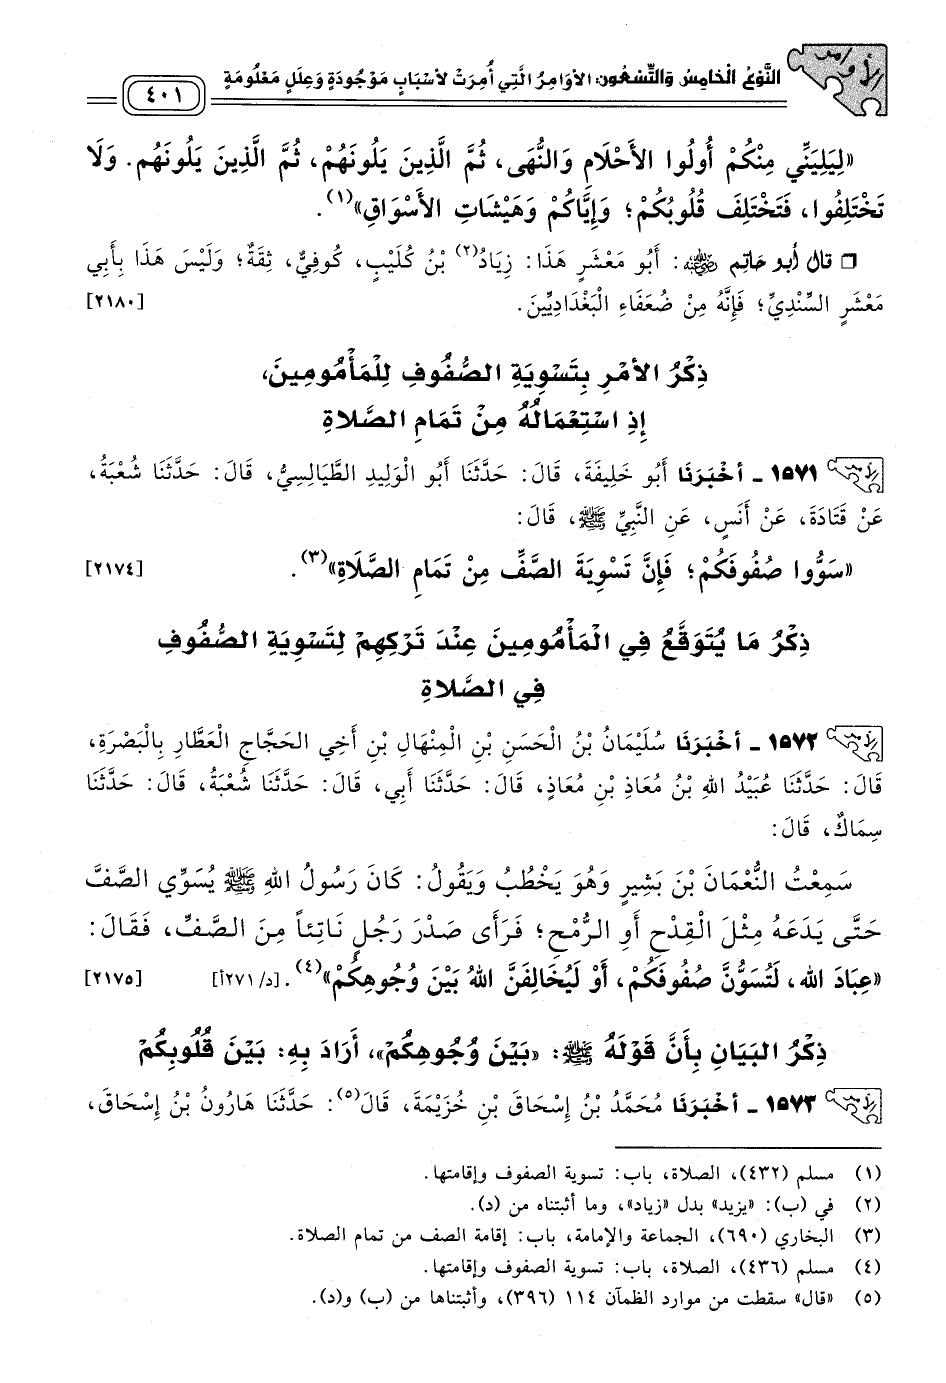 الأوامر
النَّوْعُ الْخَامِسُ وَالتِّسْعُونَ: الأَوَامِرُ الَّتِي أُمِرَتْ لأَسْبَابٍ مَوْجُودَةٍ وَعِلَلٍ مَعْلُومَةٍ
٤٠١
«لِيَلِيَنِّي مِنْكُمْ أُولُوا الأَحْلَامِ وَالنُّهَى، ثُمَّ الَّذِينَ يَلُونَهُمْ، ثُمَّ الَّذِينَ يَلُونَهُم. وَلَا
تَخْتَلِفُوا، فَتَخْتَلِفَ قُلُوبُكُمْ؛ وَإِيَّاكُمْ وَهَيْشَاتِ الأَسْوَاقِ»(١).
❒ قال أبو حاتم رضي الله عنه: أَبُو مَعْشَرٍ هَذَا: زِيَادُ(٢) بْنُ كُلَيْبٍ، كُوفِيٌّ، ثِقَةٌ؛ وَلَيْسَ هَذَا بِأَبِي
مَعْشَرٍ السِّنْدِيِّ؛ فَإِنَّهُ مِنْ ضُعَفَاءِ الْبَغْدَادِيِّينَ. [٢١٨٠]
ذِكْرُ الأَمْرِ بِتَسْوِيَةِ الصُّفُوفِ لِلْمَأْمُومِينَ،
إِذِ اسْتِعْمَالُهُ مِنْ تَمَامِ الصَّلَاةِ
١٥٧١ - أَخْبَرَنَا أَبُو خَلِيفَةَ، قَالَ: حَدَّثَنَا أَبُو الْوَلِيدِ الطَّيَالِسِيُّ، قَالَ: حَدَّثَنَا شُعْبَةُ،
عَنْ قَتَادَةَ، عَنْ أَنَسٍ، عَنِ النَّبِيِّ ﷺ، قَالَ:
«سَوُّوا صُفُوفَكُمْ؛ فَإِنَّ تَسْوِيَةَ الصَّفِّ مِنْ تَمَامِ الصَّلَاةِ»(٣). [٢١٧٤]
ذِكْرُ مَا يُتَوَقَّعُ فِي الْمَأْمُومِينَ عِنْدَ تَرْكِهِمْ لِتَسْوِيَةِ الصُّفُوفِ
فِي الصَّلَاةِ
١٥٧٢ - أَخْبَرَنَا سُلَيْمَانُ بْنُ الْحَسَنِ بْنِ الْمِنْهَالِ بْنِ أَخِي الحَجَّاجِ الْعَطَّارِ بِالْبَصْرَةِ،
قَالَ: حَدَّثَنَا عُبَيْدُ اللهِ بْنُ مُعَاذِ بْنِ مُعَاذٍ، قَالَ: حَدَّثَنَا أَبِي، قَالَ: حَدَّثَنَا شُعْبَةُ، قَالَ: حَدَّثَنَا
سِمَاكٌ، قَالَ:
سَمِعْتُ النُّعْمَانَ بْنَ بَشِيرٍ وَهُوَ يَخْطُبُ وَيَقُولُ: كَانَ رَسُولُ اللهِ ﷺ يُسَوِّي الصَّفَّ
حَتَّى يَدَعَهُ مِثْلَ الْقِدْحِ أَوِ الرُّمْحِ؛ فَرَأَى صَدْرَ رَجُلٍ نَاتِئاً مِنَ الصَّفِّ، فَقَالَ:
«عِبَادَ الله، لَتُسَوُّنَّ صُفُوفَكُمْ، أَوْ لَيُخَالِفَنَّ اللهُ بَيْنَ وُجُوهِكُمْ»(٤). [د/٢٧١أ] [٢١٧٥]
ذِكْرُ الْبَيَانِ بِأَنَّ قَوْلَهُ ﷺ: «بَيْنَ وُجُوهِكُمْ»، أَرَادَ بِهِ: بَيْنَ قُلُوبِكُمْ
١٥٧٣ - أَخْبَرَنَا مُحَمَّدُ بْنُ إِسْحَاقَ بْنِ خُزَيْمَةَ، قَالَ(٥): حَدَّثَنَا هَارُونُ بْنُ إِسْحَاقَ،
(١) مسلم (٤٣٢)، الصلاة، باب: تسوية الصفوف وإقامتها.
(٢) في (ب): «يزيد» بدل «زياد»، وما أثبتناه من (د).
(٣) البخاري (٦٩٠)، الجماعة والإمامة، باب: إقامة الصف من تمام الصلاة.
(٤) مسلم (٤٣٦)، الصلاة، باب: تسوية الصفوف وإقامتها.
(٥) «قال» سقطت من موارد الظمآن ١١٤ (٣٩٦)، وأثبتناها من (ب) و(د).